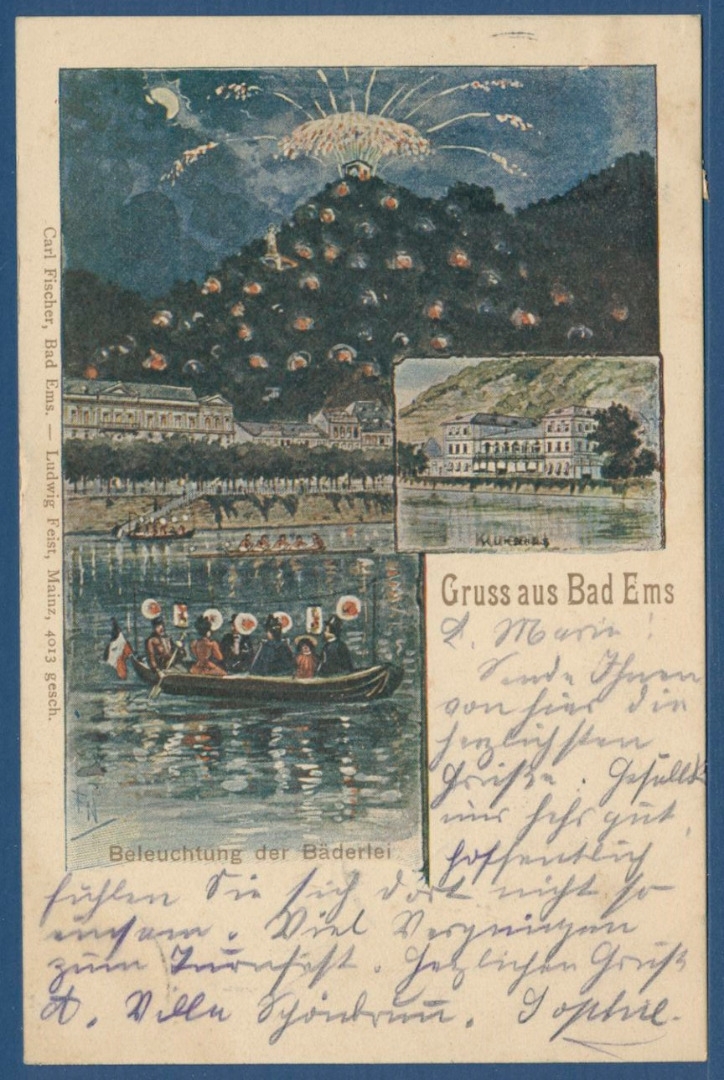 Carl Fischer, Bad Ems. — Ludwig Feist, Mainz, 4013 gesch.
Kurhaus
Gruss aus Bad Ems
L. Marie!
Sende Ihnen
von hier die
herzlichsten
Grüße. Gefällt
mir sehr gut,
hoffentlich
Beleuchtung der Bäderlei
fühlen Sie sich dort nicht so
einsam. Viel Vergnügen
zum Turnfest. Herzlichen Gruß
Villa Schönbrunn. Sophie.